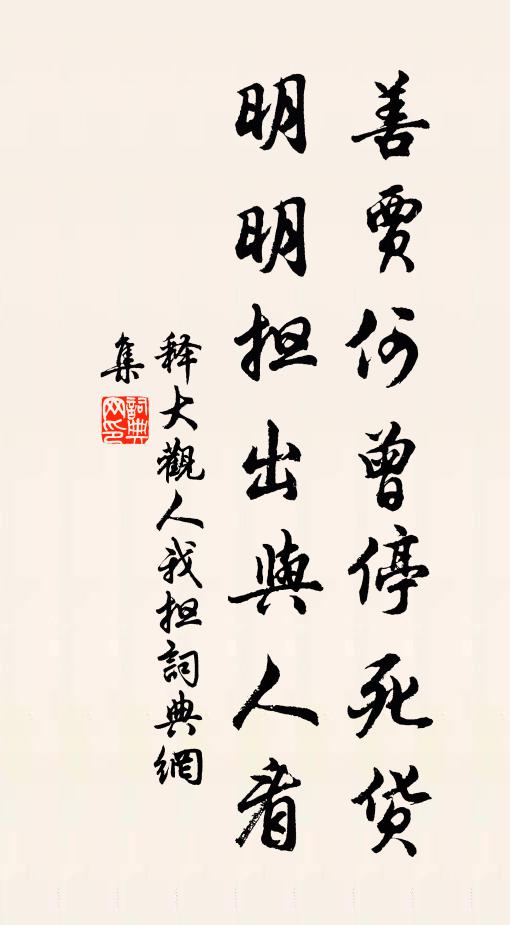 善賈何曾停死货
明明担出與人看
释大觀人我担詞典網
集
詞典
网印